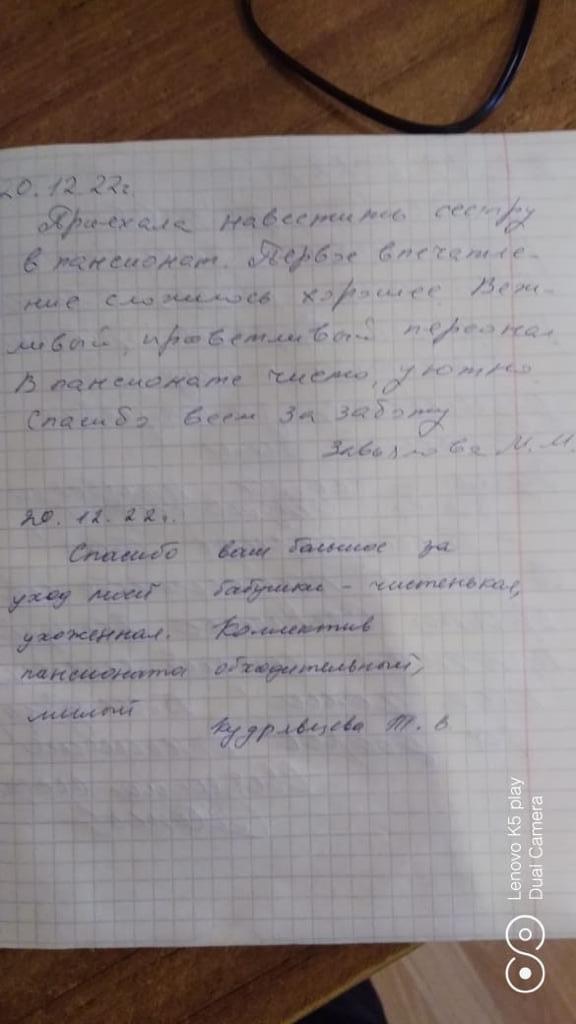 20.12.22г.
Приехала навестить сестру
в пансионат. Первое впечатле-
ние сложилось хорошее. Веж-
ливый, приветливый персонал.
В пансионате чисто, уютно.
Спасибо всем за заботу
М.М.
20.12.22г.
Спасибо вам большое за
уход моей бабушки - чистенькая,
ухоженная. Коллектив
пансионата обходительный,
милый
Кудрявцева Т. В
Lenovo K5 play
Dual Camera